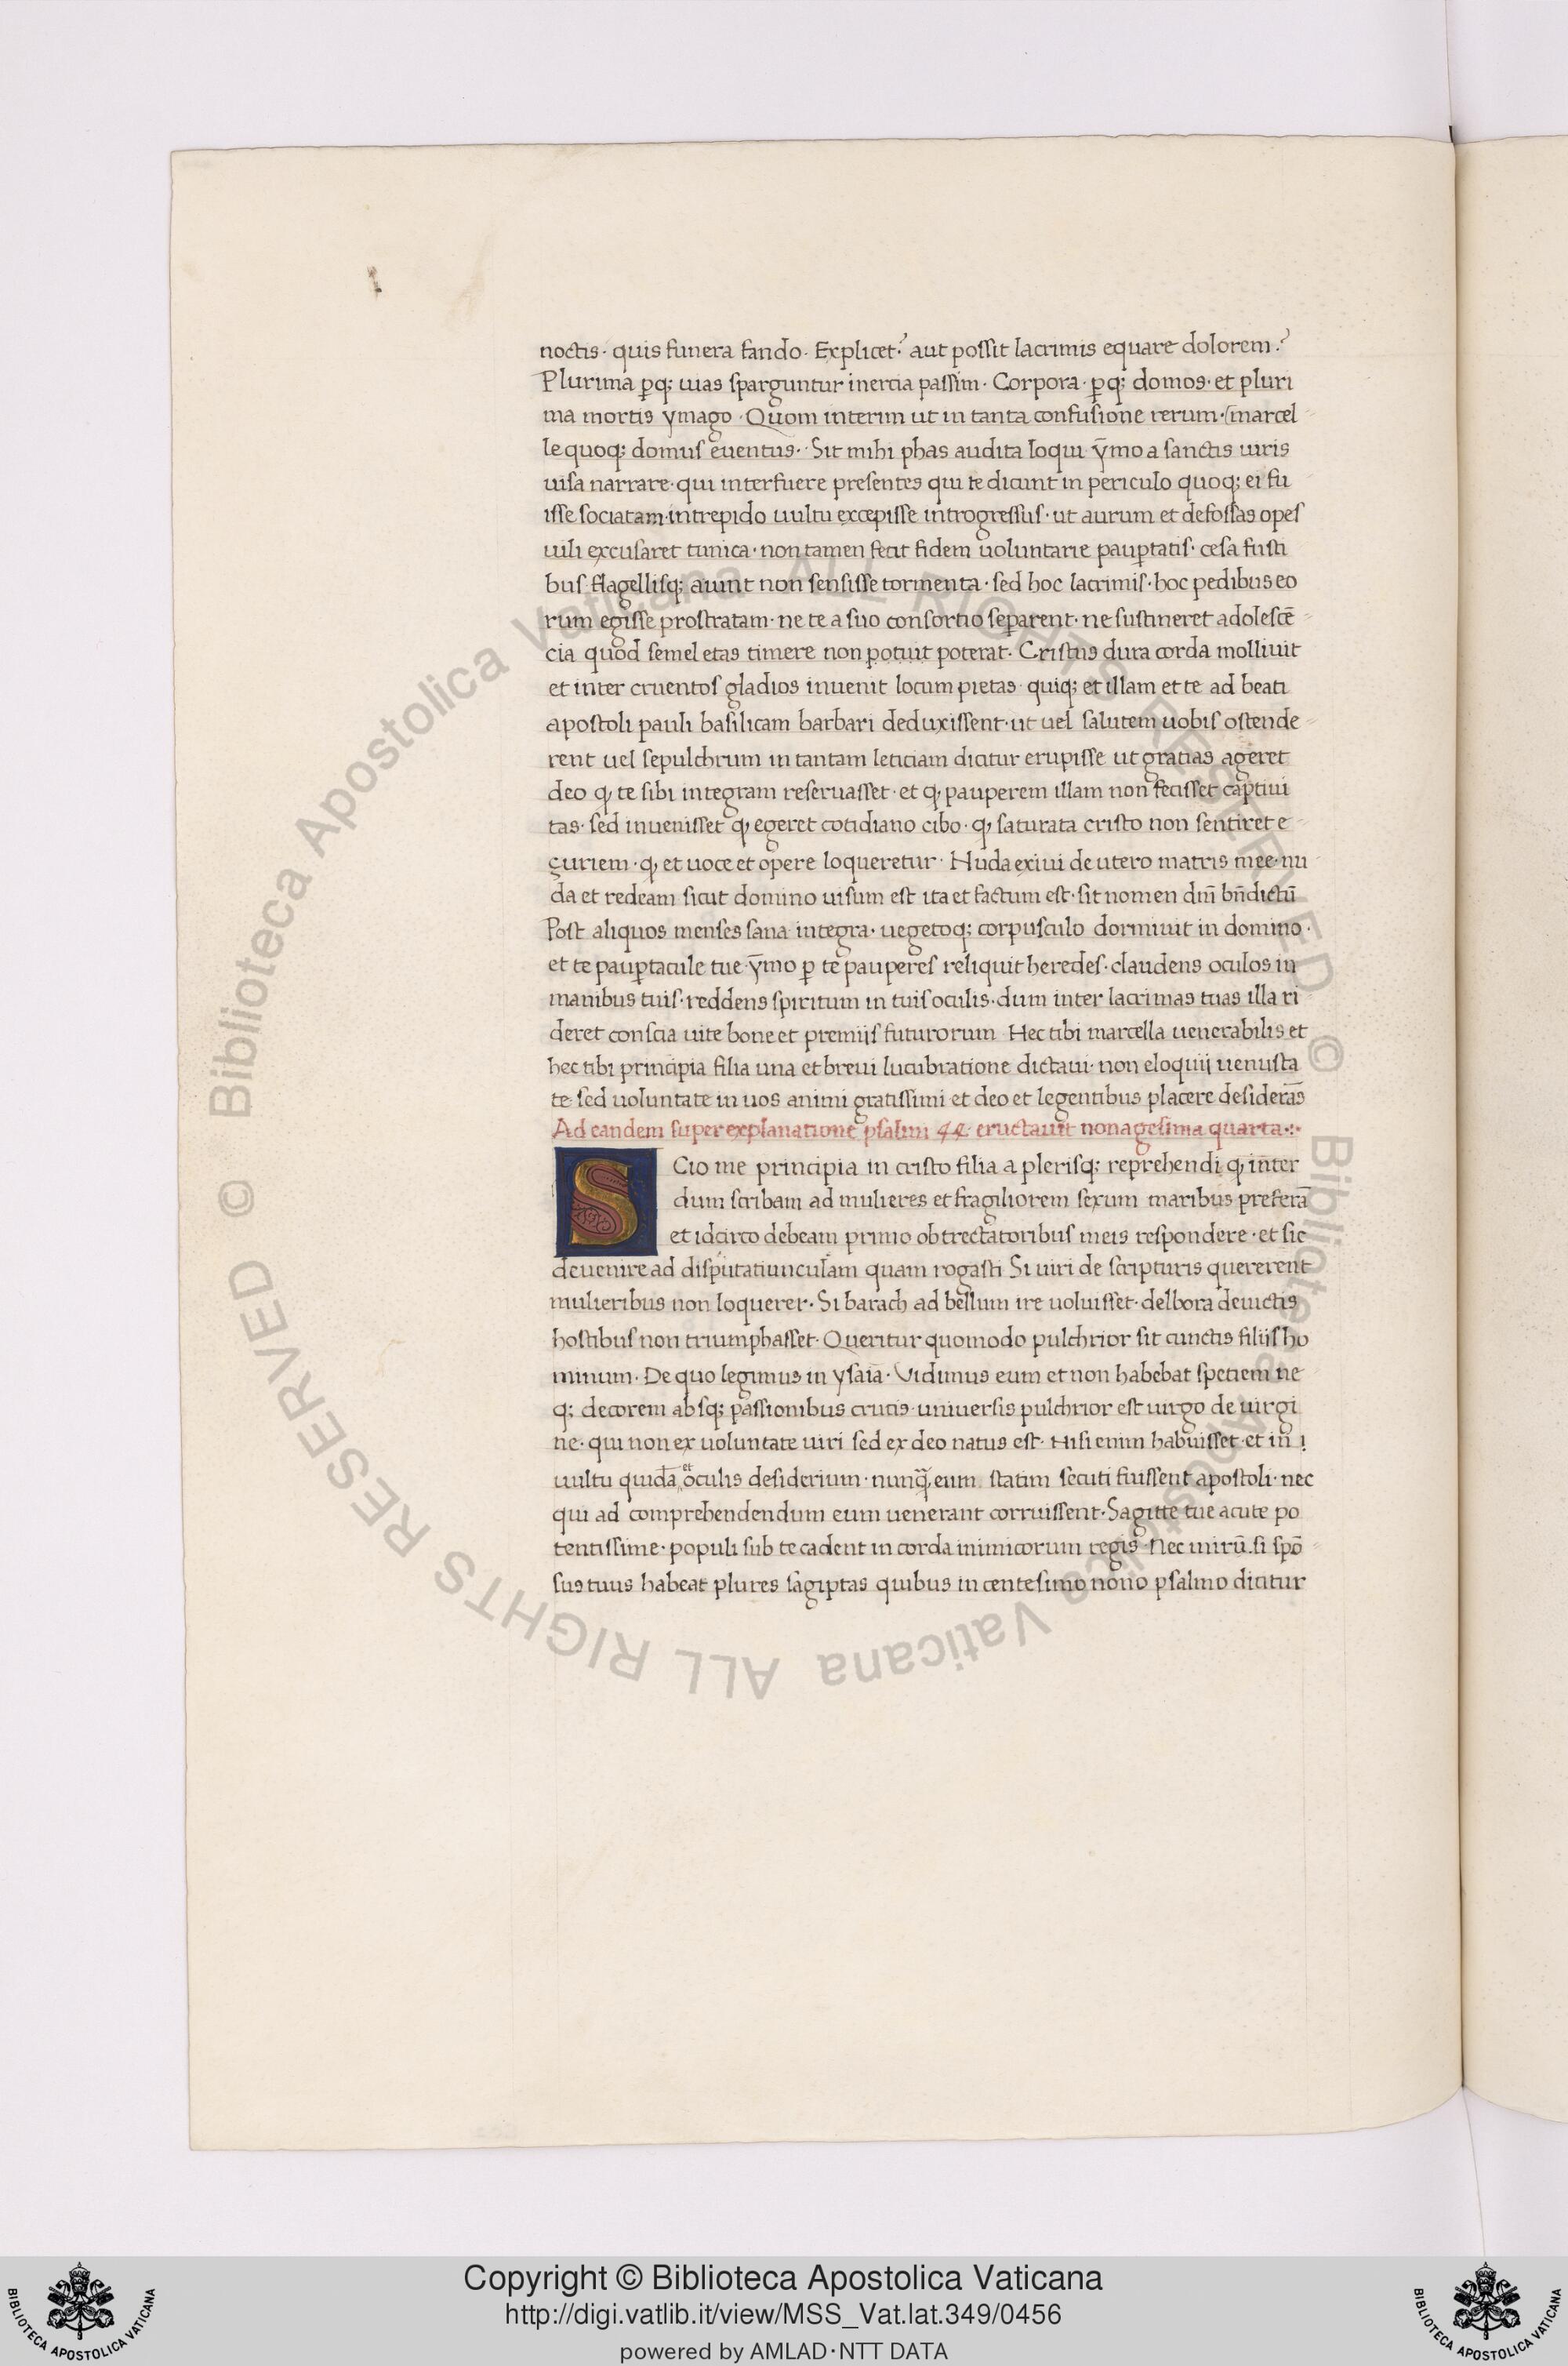 noctis· quis funera fando· Explicet·? aut possit lacrimis equare dolorem·?
Plurima p̱q; uias sparguntur inercia passim· Corpora· p̱q; domos· et pluri
ma mortis ymago· Quom interim ut in tanta confusione rerum· (marcel
le quoq; domus euentus· Sit mihi phas audita loqui ȳmo a sanctis uiris
uisa narrare· qui interfuere presentes qui te dicunt in periculo quoq; ei fu
isse sociatam· intrepido uultu excepisse introgressus· ut aurum et defossas opes
uili excusaret tunica· non tamen fecit fidem uoluntarie paup̱tatis· cesa fusti
bus flagellisq; aiunt non sensisse tormenta· sed hoc lacrimis· hoc pedibus eo
rum egisse prostratam· ne te a suo consortio sep̱arent· ne sustineret adolescē
cia quod semel etas timere non potuit poterat· Cristus dura corda molliuit
et inter cruentos gladios inuenit locum pietas· quiq; et illam et te ad beati
apostoli pauli basilicam barbari deduxissent· ut uel salutem uobis ostende
rent uel sepulchrum in tantam leticiam dicitur erupisse ut gratias ageret
deo q, te sibi integram reseruasset· et q, pauperem illam non fecisset captiui
tas· sed inuenisset q, egeret cotidiano cibo· q, saturata cristo non sentiret e
suriem· q, et uoce et opere loqueretur· Nuda exiui de utero matris mee· nu
da et redeam sicut domino uisum est ita et factum est· sit nomen dm̄ bn̄dictū
Post aliquos menses sana integra· uegetoq; corpusculo dormiuit in domino·
et te paup̱tacule tue· ȳmo p̱ te pauperes reliquit heredes· claudens oculos in
manibus tuis· reddens spiritum in tuis oculis· dum inter lacrimas tuas illa ri
deret conscia uite bone et premiis futurorum Hec tibi marcella uenerabilis et
hec tibi principia filia una et breui lucubratione dictaui· non eloquii uenusta
te sed uoluntate in uos animi gratissimi et deo et legentibus placere desiderās
Ad eandem super explanatione psalmi 44· eructauit nonagesima quarta·:·
SCio me principia in cristo filia a plerisq; reprehendi q, inter
dum scribam ad mulieres et fragiliorem sexum maribus preferā
et idcirco debeam primo obtrectatoribus meis respondere· et sic
deuenire ad disputatiunculam quam rogasti Si uiri de scripturis quererent
mulieribus non loquerer· Si barach ad bellum ire uoluisset· delbora deuictis
hostibus non triumphasset· Queritur quomodo pulchrior sit cunctis filiis ho
minum· De quo legimus in ysaia· Vidimus eum et non habebat speciem ne
q; decorem absq; passionibus crucis· uniuersis pulchrior est uirgo de uirgi
ne· qui non ex uoluntate uiri sed ex deo natus est· Nisi enim habuisset· et in
uultu quidā et oculis desiderium· nunq̄, eum statim secuti fuissent apostoli· nec
qui ad comprehendendum eum uenerant corruissent· Sagitte tue acute po
tentissime· populi sub te cadent in corda inimicorum regis· Nec mirū si spō
sus tuus habeat plures sagiptas quibus in centesimo nono psalmo dicitur
© Biblioteca Apostolica Vaticana ALL RIGHTS RESERVED © Biblioteca Apostolica Vaticana ALL RIGHTS RESERVED
Copyright © Biblioteca Apostolica Vaticana
http://digi.vatlib.it/view/MSS_Vat.lat.349/0456
powered by AMLAD·NTT DATA
BIBLIOTECA APOSTOLICA VATICANA
BIBLIOTECA APOSTOLICA VATICANA